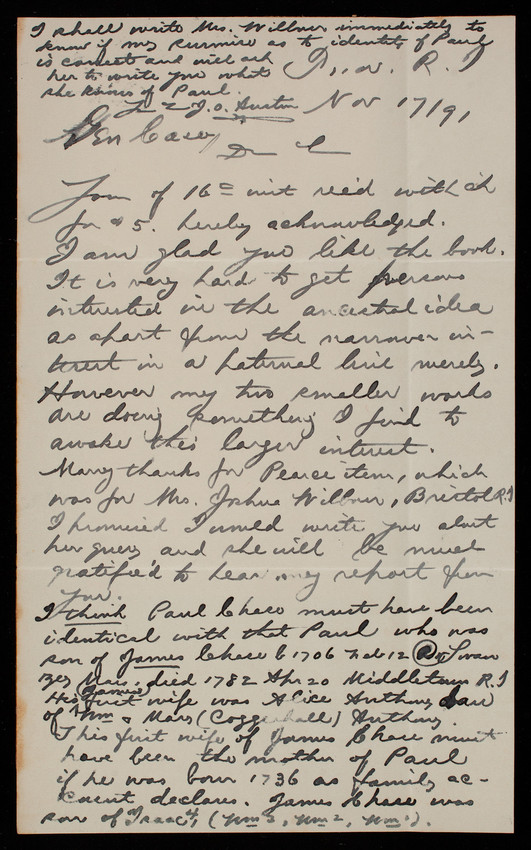 I shall write Mrs. Wilbur immediately to
know if my surmise as to identity of Paul
is correct and will ask
her to write you what
she knows of Paul.
J. O. Austin
Prov. R. I
Nov 17/91
Gen Casey
Dr Sir
Your of 16th inst rec'd with ch
for $5. hereby acknowledged.
I am glad you like the book.
It is very hard to get persons
interested in the ancestral idea
as apart from the narrower in-
terest in a paternal line merely.
However my two smaller works
are doing something I find to
awake this larger interest.
Many thanks for Pearce item, which
was for Mrs. Joshua Wilbur, Bristol R.I
I promised I would write you about
her query and she will be much
gratified to hear my report from
you.
I think Paul Chase must have been
identical with that Paul who was
son of James Chase b 1706 Feb 12 Swan
zey Mass. died 1782 Apr 20 Middletown R.I
His (James) first wife was Alice Anthony dau
of Wm & Mary (Coggeshall) Anthony.
This first wife of James Chase must
have been the mother of Paul
if he was born 1736 as family ac-
count declares. James Chase was
son of Isaac4, (Wm3, Wm2, Wm1).